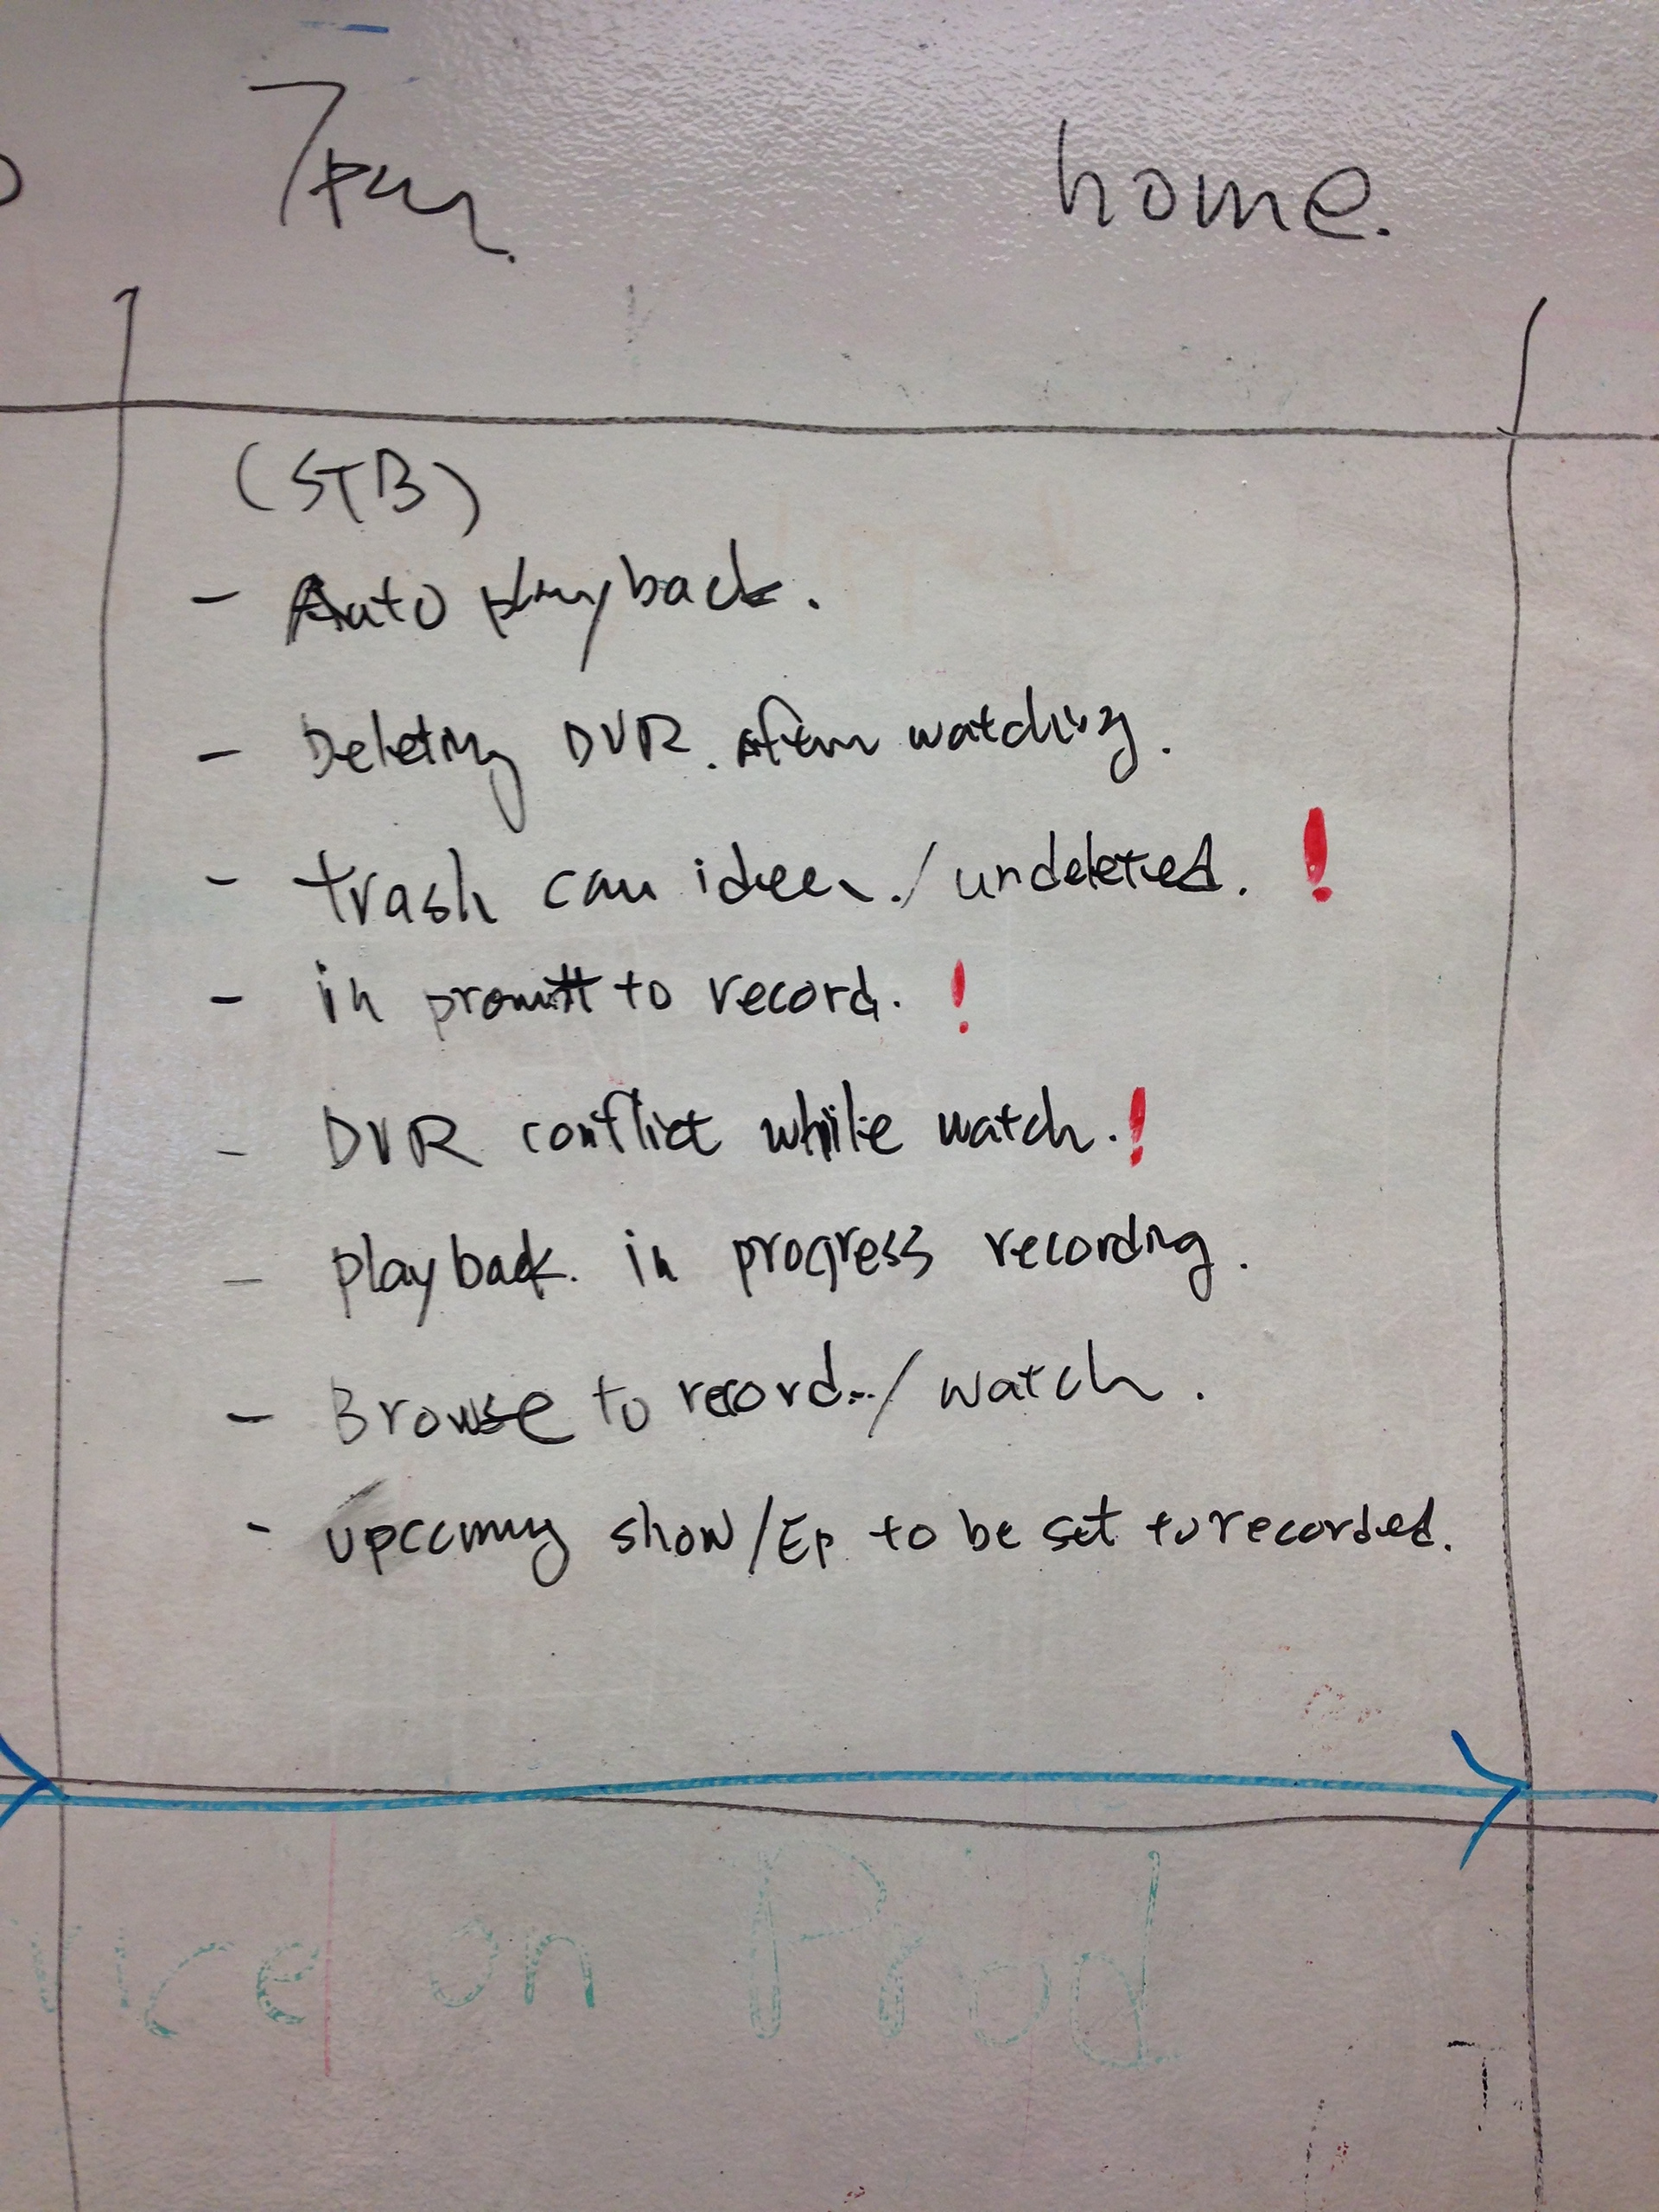 7pm. home.
(STB)
- Auto playback.
- Deleting DVR. after watching.
- trash can idea./undeleted. !
- in to record. !
- DVR conflict while watch. !
- playback. in progress recording.
- Browse to record../watch.
- upcoming show/Ep. to be set to recorded.
on